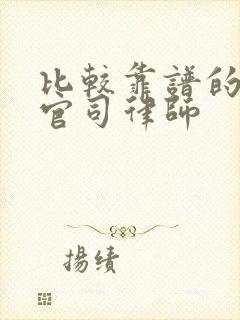 比較靠譜的
官司律師
揚績